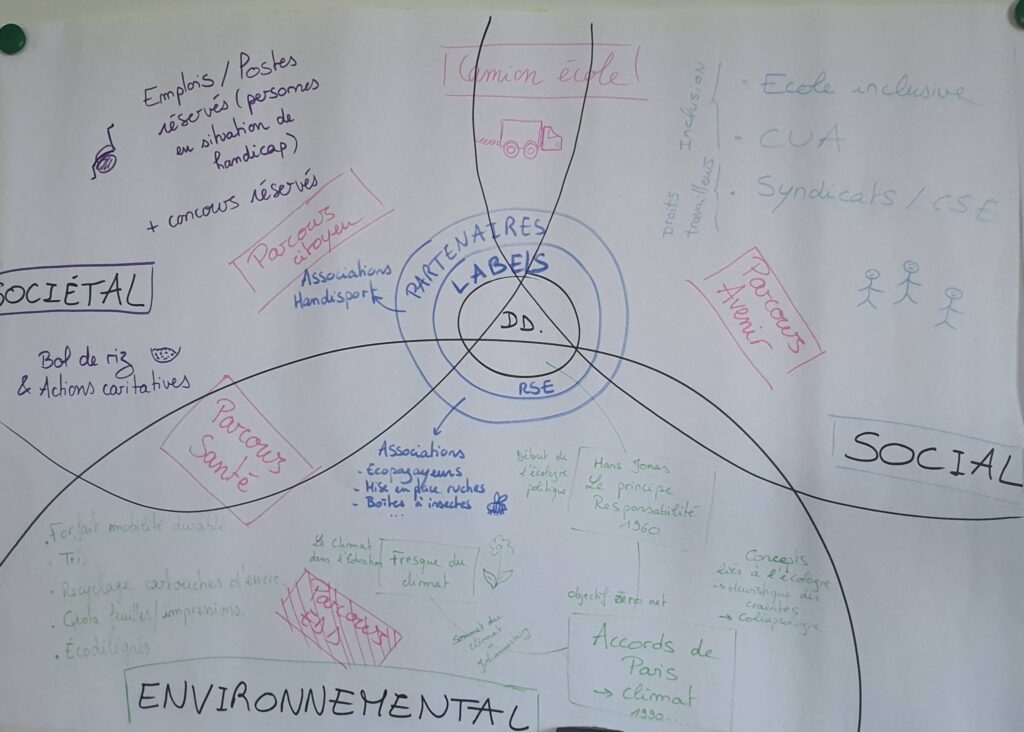 Camion école
Emplois / Postes
réservés (personnes
en situation de
handicap)
+ concours réservés
Inclusion
• Ecole inclusive
• CUA
Droits
travailleurs
• Syndicats / CSE
Parcours
citoyen
SOCIÉTAL
Associations
Handisport
PARTENAIRES
LABELS
DD.
RSE
Parcours
Avenir
Bol de riz
& Actions caritatives
Parcours
Santé
SOCIAL
Associations
- Ecopagayeurs
- Mise en place ruches
- Boîtes à insectes
...
Début de
l'écologie
politique
Hans Jonas
Le principe
Responsabilité
1960
• Forfait mobilité durable
• Tri.
• Recyclage cartouches d'encre
• Quota feuilles/impressions.
• Écodélégués
Le climat
dans l'éducation
Fresque du
climat
Parcours
EDD
Concepts
liés à l'écologie
→ Heuristique des
craintes
→ Collapsologie
Objectif zéro net
Sommet du
climat
à
Johannesburg
Accords de
Paris
→ Climat
1990...
ENVIRONNEMENTAL